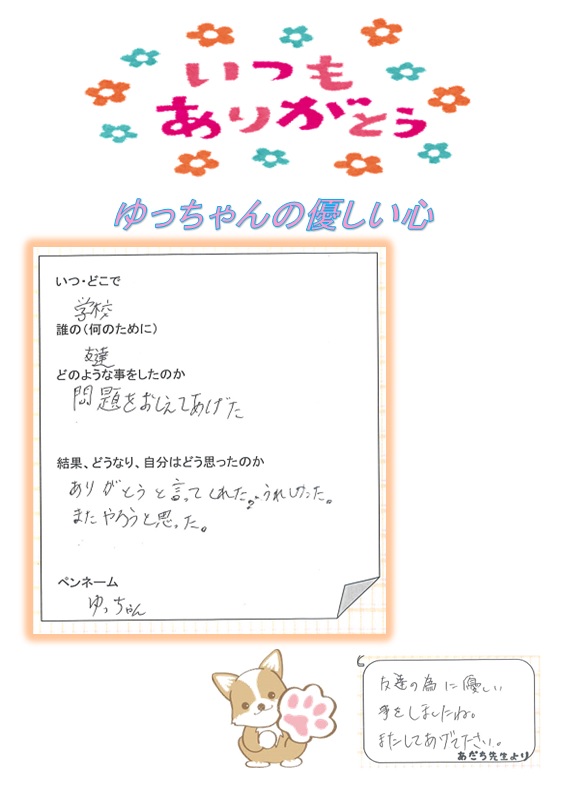 いつも
ありがとう
ゆっちゃんの優しい心
いつ・どこで
学校
誰の（何のために）
友達
どのような事をしたのか
問題をおしえてあげた
結果、どうなり、自分はどう思ったのか
ありがとうと言ってくれた。うれしかった。
またやろうと思った。
ペンネーム
ゆっちゃん
友達の為に優しい
事をしましたね。
またしてあげて下さい。
あだち先生より